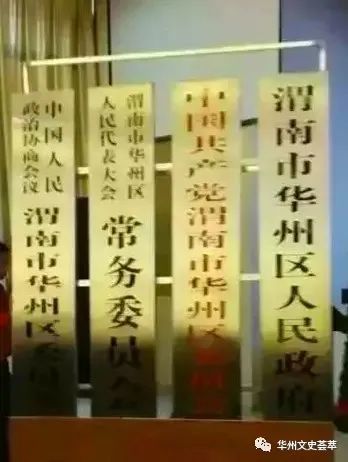 渭南市华州区人民政府
中国共产党渭南市华州区委员会
渭南市华州区
人民代表大会
常务委员会
中国人民
政治协商会议
渭南市华州区委员会
华州文史荟萃